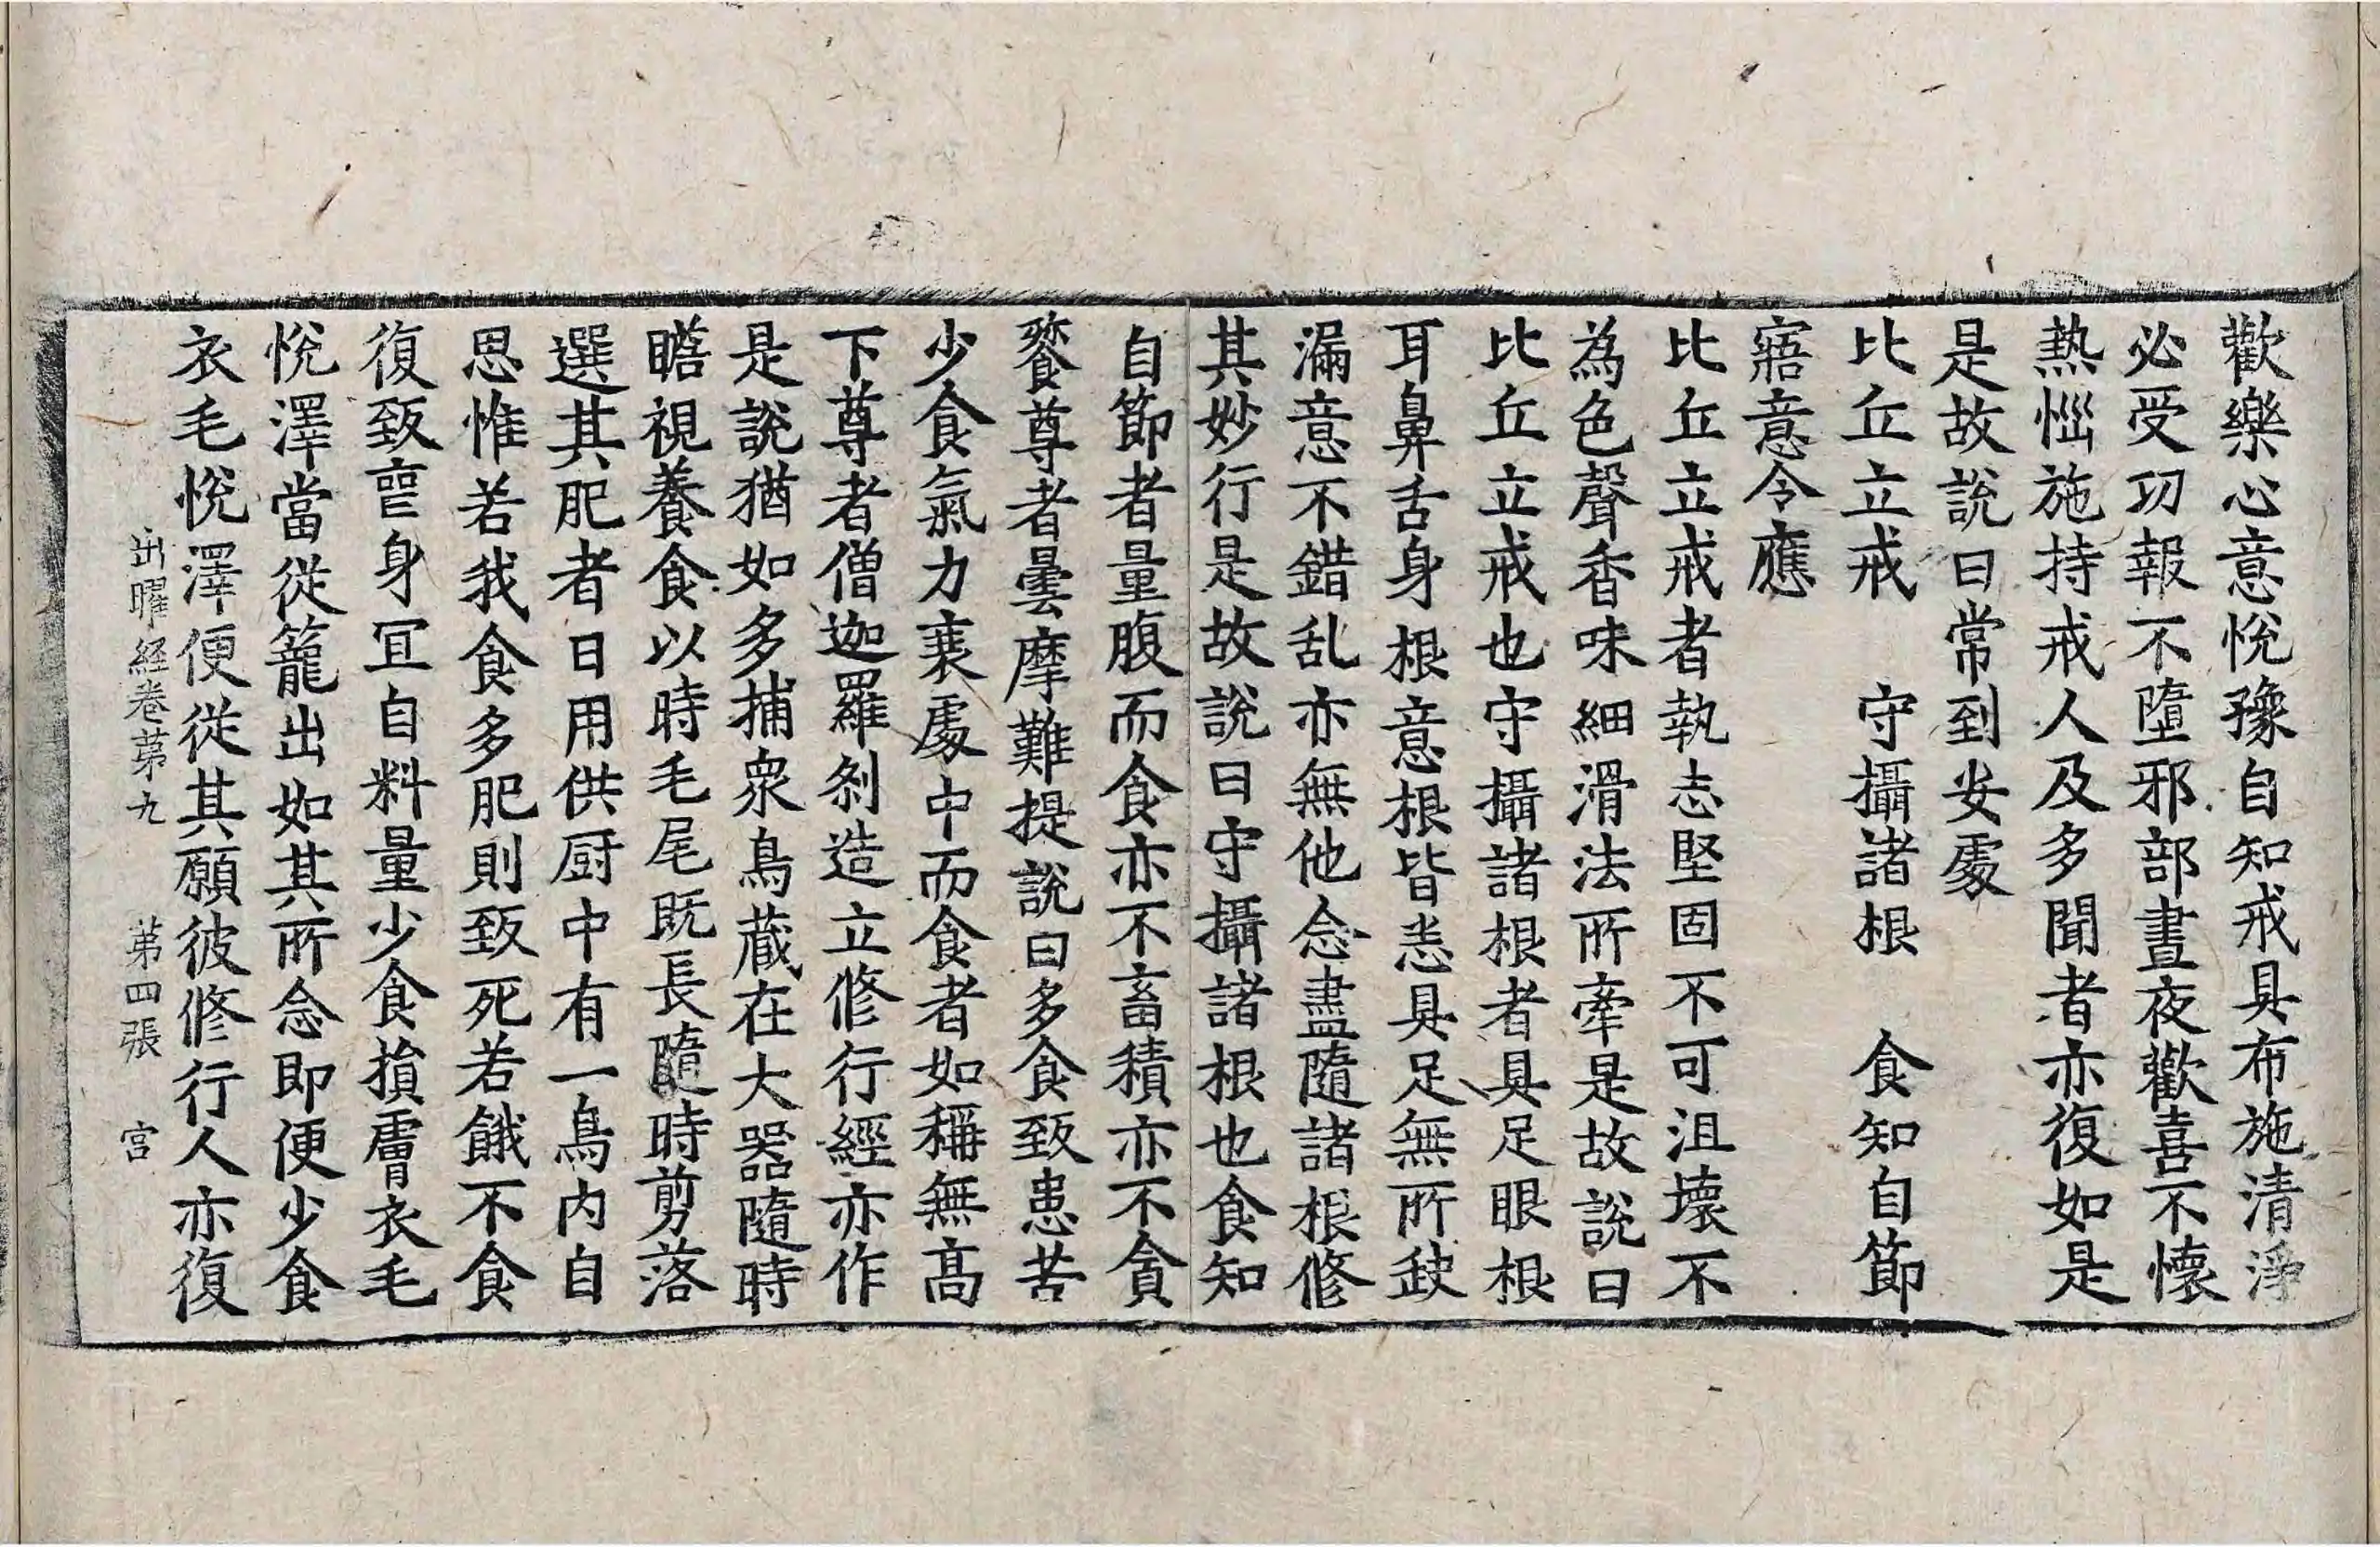 歡樂心意悅豫自知戒具布施清淨
必受功報不墮邪部晝夜歡喜不懷
熱惱施持戒人及多聞者亦復如是
是故說曰常到安處
比丘立戒　守攝諸根　食知自節
寤意令應
比丘立戒者執志堅固不可沮壞不
為色聲香味細滑法所牽是故說曰
比丘立戒也守攝諸根者具足眼根
耳鼻舌身根意根皆悉具足無所缺
漏意不錯乱亦無他念盡隨諸根修
其妙行是故說曰守攝諸根也食知
自節者量腹而食亦不畜積亦不貪
餮尊者曇摩難提說曰多食致患苦
少食氣力衰處中而食者如稱無高
下尊者僧迦羅剎造立修行經亦作
是說猶如多捕眾鳥藏在大器隨時
瞻視養食以時毛尾既長隨時剪落
選其肥者日用供厨中有一鳥內自
思惟若我食多肥則致死若餓不食
復致喪身宜自料量少食損膚衣毛
悅澤當從籠出如其所念即便少食
衣毛悅澤便從其願彼修行人亦復
出曜経卷第九　第四張　宫